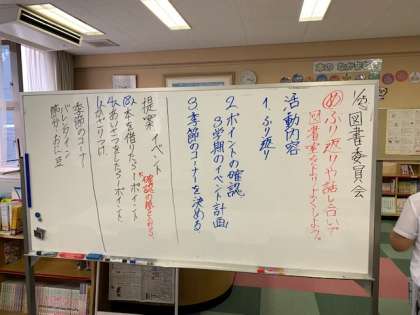 図書委員会
め ふり返りや話し合いで
図書室をよりよくしよう。
活動内容
1. ふり返り
2 ポイントの確認
3学期のイベント計画
3 季節のコーナーを決める
提案 イベント
本を借りたら1ポイント
あいさつをしたら1ポイント
季節のコーナー
バレンタイン
節分 おに 豆
本の